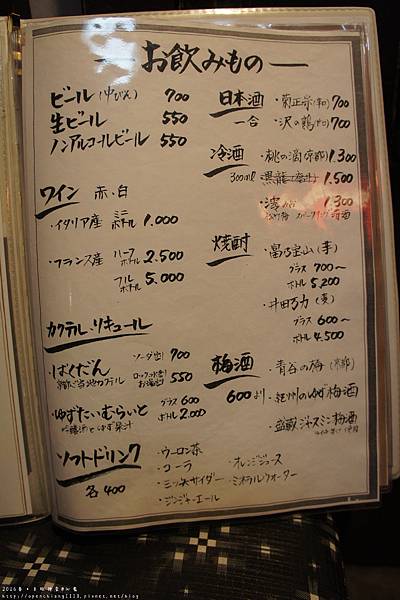 お飲みもの
ビール(中びん) 700
生ビール 550
ノンアルコールビール 550
ワイン 赤・白
・イタリア産 ミニボトル 1.000
・フランス産 ハーフボトル 2.500
フルボトル 5.000
カクテル・リキュール
・ばくだん ソーダ出り 700
ロック、水割り お湯割り 550
・ゆずたいむらいと グラス 600
ボトル 2.000
ソフトドリンク
各400
・ウーロン茶
・コーラ
・三ツ矢サイダー
・ジンジャーエール
・オレンジジュース
・ミネラルウォーター
日本酒 ・菊正宗 700
一合 ・沢の鶴 700
冷酒 ・桃の滴(京都) 1.300
300ml 黒龍 1.500
1.300
焼酎 ・富乃宝山(芋)
グラス 700〜
ボトル 5,200
グラス 600〜
ボトル 4,500
梅酒 ・青谷の梅(京都)
600より ・紀州のゆず梅酒
ジャスミン梅酒